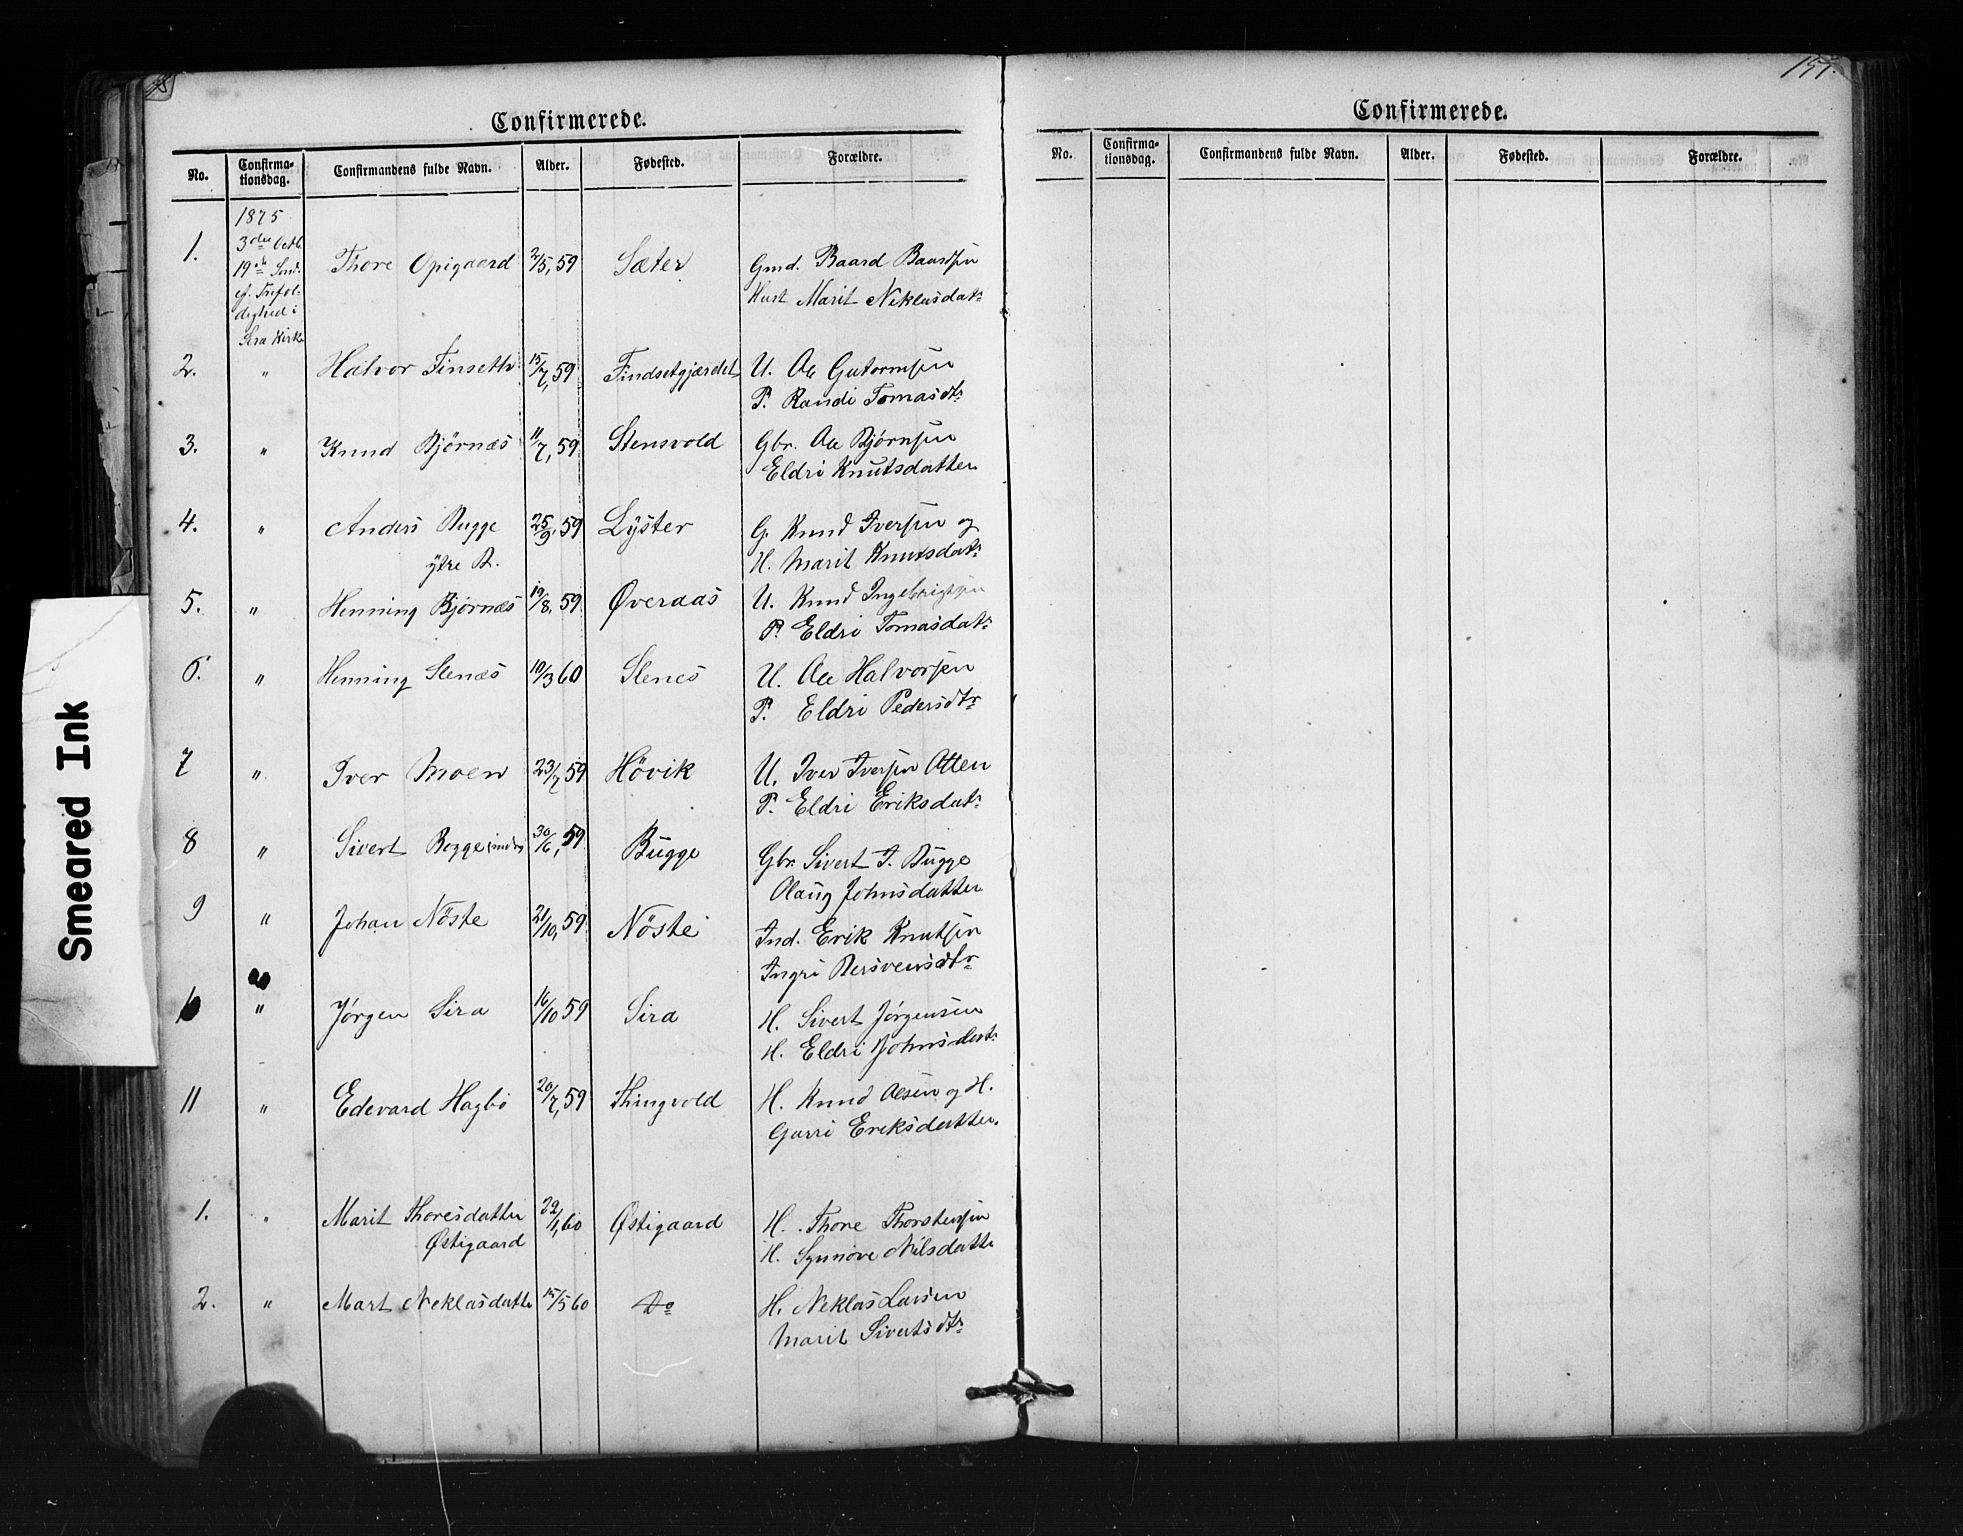 Confirmerede.
No.
Confirma-
tionsdag.
Confirmandens fulde Navn.
Alder.
Fødested.
Forældre.
1875
3die Octb.
19de Snd.
ef. Trefol-
dighed i
Sira Kirke
1. Thore Opigaard 2/5, 59 Sæter Gmd. Baard Baardsen
Hust Marit Neklasdatr
2. " Halvor Finseth 15/7, 59 Findsetgjærdet U. Ole Gutormsen
P. Randi Tomasdtr
3. " Knud Bjørnæs 11/7, 59 Stensvold Gbr. Ole Bjørnsen
Eldri Knutsdatter
4. " Anders Bugge 25/9, 59 Lÿster G. Knud Iversen og
ÿtre B. H. Marit Knutsdatr
5. " Henning Bjørnæs 19/8, 59 Øveraas U. Knud Ingebrigtsen
P. Eldri Tomasdatr
6. " Henning Slenæs 19/3 60 Slenes U. Ole Halvorsen
P. Eldri Pedersdtr
7 " Iver Moen 23/7 59 Hövik U. Iver Iversen Otten
P. Eldri Eriksdatr
8 " Sivert Bogge indre 30/6, 59 Bugge Gbr. Sivert I. Bugge
Olaug Johnsdatter
9 " Johan Nöste 21/10, 59 Nöste Ind. Erik Knutsen
Ingri Bersvensdtr
10 " Jørgen Sira 16/10 59 Sira H. Sivert Jørgensen
H. Eldri Johnsdatr
11 " Edevard Hagbö 20/7, 59 Thingvold H. Knud Olsen og H.
Gurri Eriksdatter.
1. " Marit Thoresdatter 22/1, 60 Østigaard H. Thore Thorstensen
Østigaard H. Synnöve Nilsdatter
2. " Mart Neklasdatte 15/5 60 Do H. Neklas Larsen
Marit Sivertsdtr
Smeared Ink
155.
Confirmerede.
No.
Confirma-
tionsdag.
Confirmandens fulde Navn.
Alder.
Fødested.
Forældre.